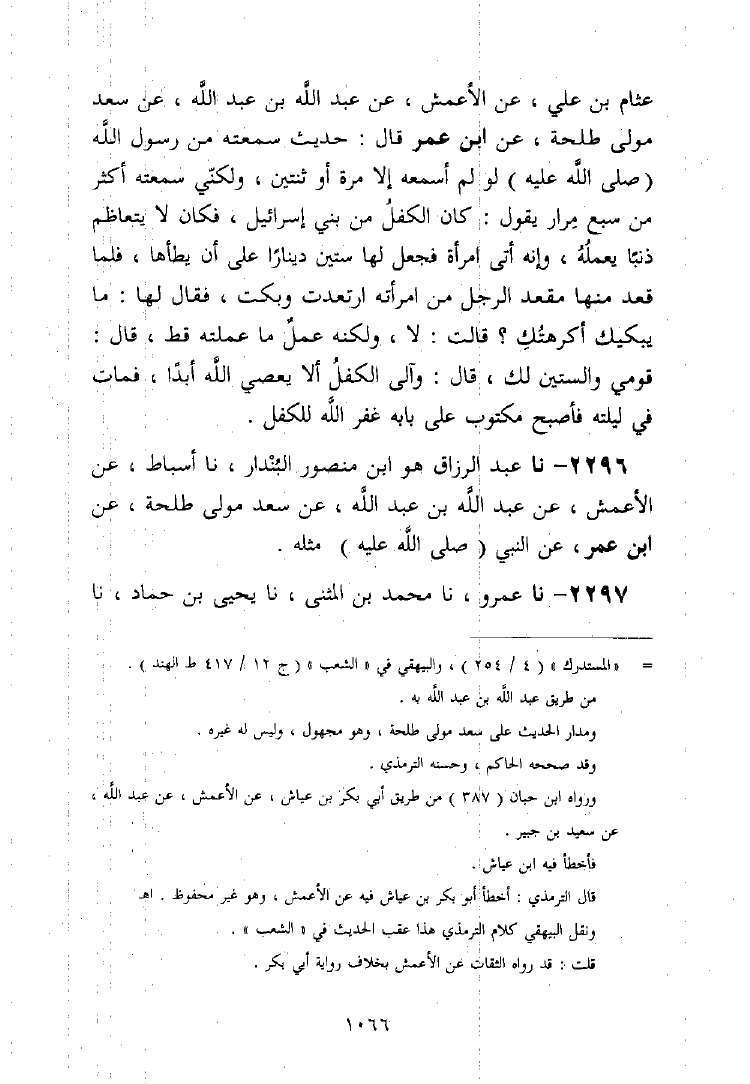 عثام بن علي ، عن الأعمش ، عن عبد اللَّه بن عبد اللَّه ، عن سعد
مولى طلحة ، عن ابن عمر قال : حديث سمعته من رسول اللَّه
( صلى اللَّه عليه ) لو لم أسمعه إلا مرة أو ثنتين ، ولكنّي سمعته أكثر
من سبع مِرار يقول : كان الكفلُ من بني إسرائيل ، فكان لا يتعاظم
ذنبًا يعملهُ ، وإنه أتى امرأة فجعل لها ستين دينارًا على أن يطأها ، فلما
قعد منها مقعد الرجل من امرأته ارتعدت وبكت ، فقال لها : ما
يبكيك أكرهتُكِ ؟ قالت : لا ، ولكنه عملٌ ما عملته قط ، قال :
قومي والستين لك ، قال : وآلى الكفلُ ألا يعصي اللَّه أبدًا ، فمات
في ليلته فأصبح مكتوب على بابه غفر اللَّه للكفل .
٢٢٩٦- نا عبد الرزاق هو ابن منصور البُنْدار ، نا أسباط ، عن
الأعمش ، عن عبد اللَّه بن عبد اللَّه ، عن سعد مولى طلحة ، عن
ابن عمر ، عن النبي ( صلى اللَّه عليه ) مثله .
٢٢٩٧- نا عمرو ، نا محمد بن المثنى ، نا يحيى بن حماد ، نا
= « المستدرك » ( ٤ / ٢٥٤ ) ، والبيهقي في « الشعب » ( ج ١٢ / ٤١٧ ط الهند ) .
من طريق عبد اللَّه بن عبد اللَّه به .
ومدار الحديث على سعد مولى طلحة ، وهو مجهول ، وليس له غيره .
وقد صححه الحاكم ، وحسنه الترمذي .
ورواه ابن حبان ( ٣٨٧ ) من طريق أبي بكر بن عياش ، عن الأعمش ، عن عبد اللَّه ،
عن سعيد بن جبير .
فأخطأ فيه ابن عياش .
قال الترمذي : أخطأ أبو بكر بن عياش فيه عن الأعمش ، وهو غير محفوظ . اهـ
ونقل البيهقي كلام الترمذي هذا عقب الحديث في « الشعب » .
قلت : قد رواه الثقات عن الأعمش بخلاف رواية أبي بكر .
١٠٦٦